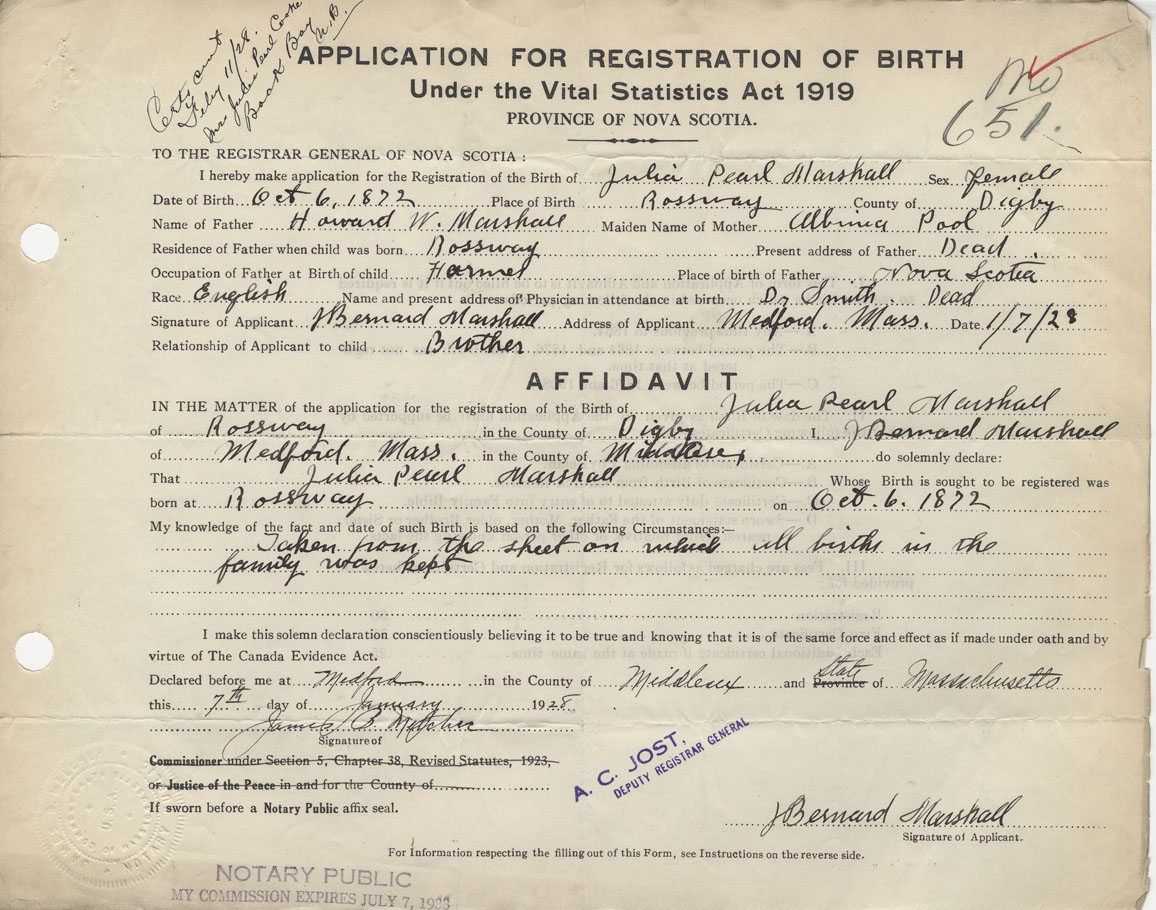 Certy sent
Feby 11/28.
Mrs Julia Pearl Cooke
Back Bay
N.B.
APPLICATION FOR REGISTRATION OF BIRTH
Under the Vital Statistics Act 1919
PROVINCE OF NOVA SCOTIA.
651.
TO THE REGISTRAR GENERAL OF NOVA SCOTIA :
I hereby make application for the Registration of the Birth of Julia Pearl Marshall Sex female
Date of Birth Oct 6, 1872 Place of Birth Rossway County of Digby
Name of Father Howard W. Marshall Maiden Name of Mother Albinia Pool
Residence of Father when child was born Rossway Present address of Father Dead.
Occupation of Father at Birth of child Farmer Place of birth of Father Nova Scotia
Race English Name and present address of Physician in attendance at birth Dr Smith. Dead
Signature of Applicant J Bernard Marshall Address of Applicant Medford. Mass. Date 1/7/28
Relationship of Applicant to child Brother
AFFIDAVIT
IN THE MATTER of the application for the registration of the Birth of Julia Pearl Marshall
of Rossway in the County of Digby I, J Bernard Marshall
of Medford. Mass. in the County of Middlesex do solemnly declare:
That Julia Pearl Marshall Whose Birth is sought to be registered was
born at Rossway on Oct. 6. 1872
My knowledge of the fact and date of such Birth is based on the following Circumstances:—
Taken from the sheet on which all births in the
family was kept
I make this solemn declaration conscientiously believing it to be true and knowing that it is of the same force and effect as if made under oath and by
virtue of The Canada Evidence Act.
Declared before me at Medford in the County of Middlesex and Province State of Massachusetts
this 7th day of January 1928.
James P.
Signature of
Commissioner under Section 5, Chapter 38, Revised Statutes, 1923,
or Justice of the Peace in and for the County of
If sworn before a Notary Public affix seal.
A. C. JOST,
DEPUTY REGISTRAR GENERAL
J Bernard Marshall
Signature of Applicant.
For Information respecting the filling out of this Form, see Instructions on the reverse side.
NOTARY PUBLIC
MY COMMISSION EXPIRES JULY 7, 1933